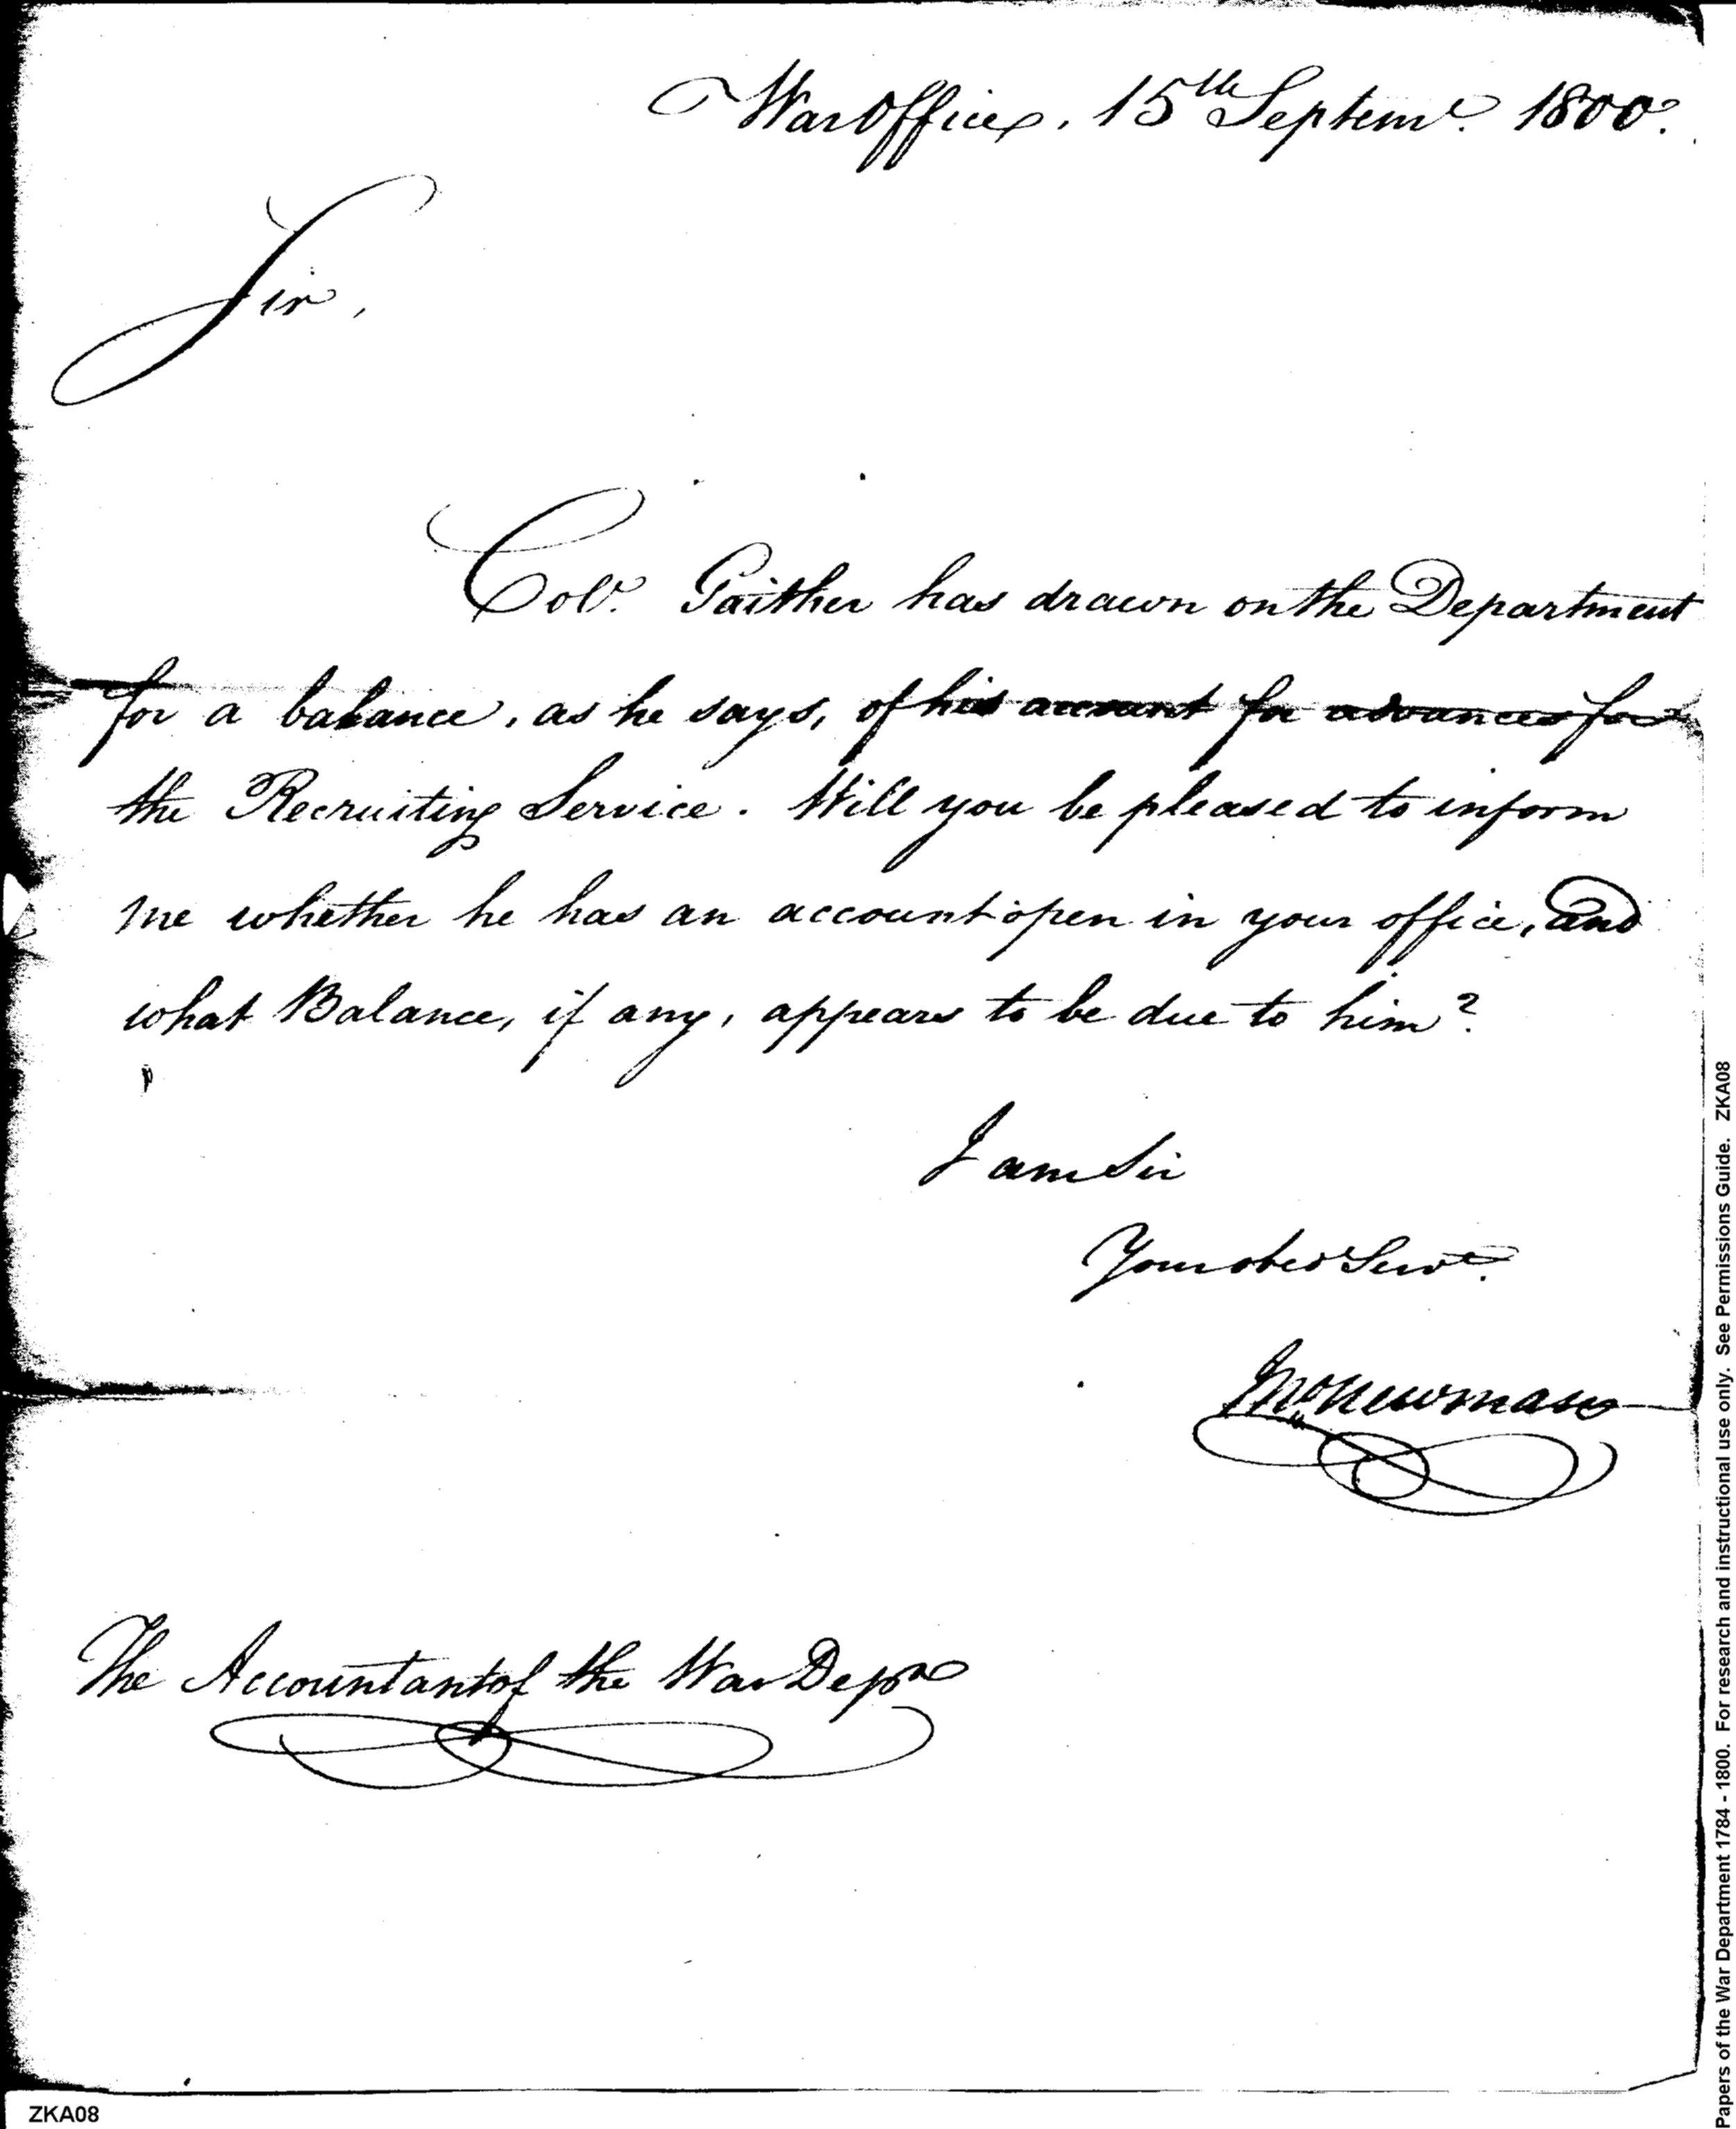 War Office, 15th Septemr. 1800.
Sir,
Colo. Gaither has drawn on the Department
for a balance, as he says, of his account for advances for
the Recruiting Service. Will you be pleased to inform
me whether he has an account open in your office, and
what Balance, if any, appears to be due to him?
I am Sir
Your obed Servt.
Jno Newman
The Accountant of the War Dept
Papers of the War Department 1784 - 1800. For research and instructional use only. See Permissions Guide. ZKA08
ZKA08